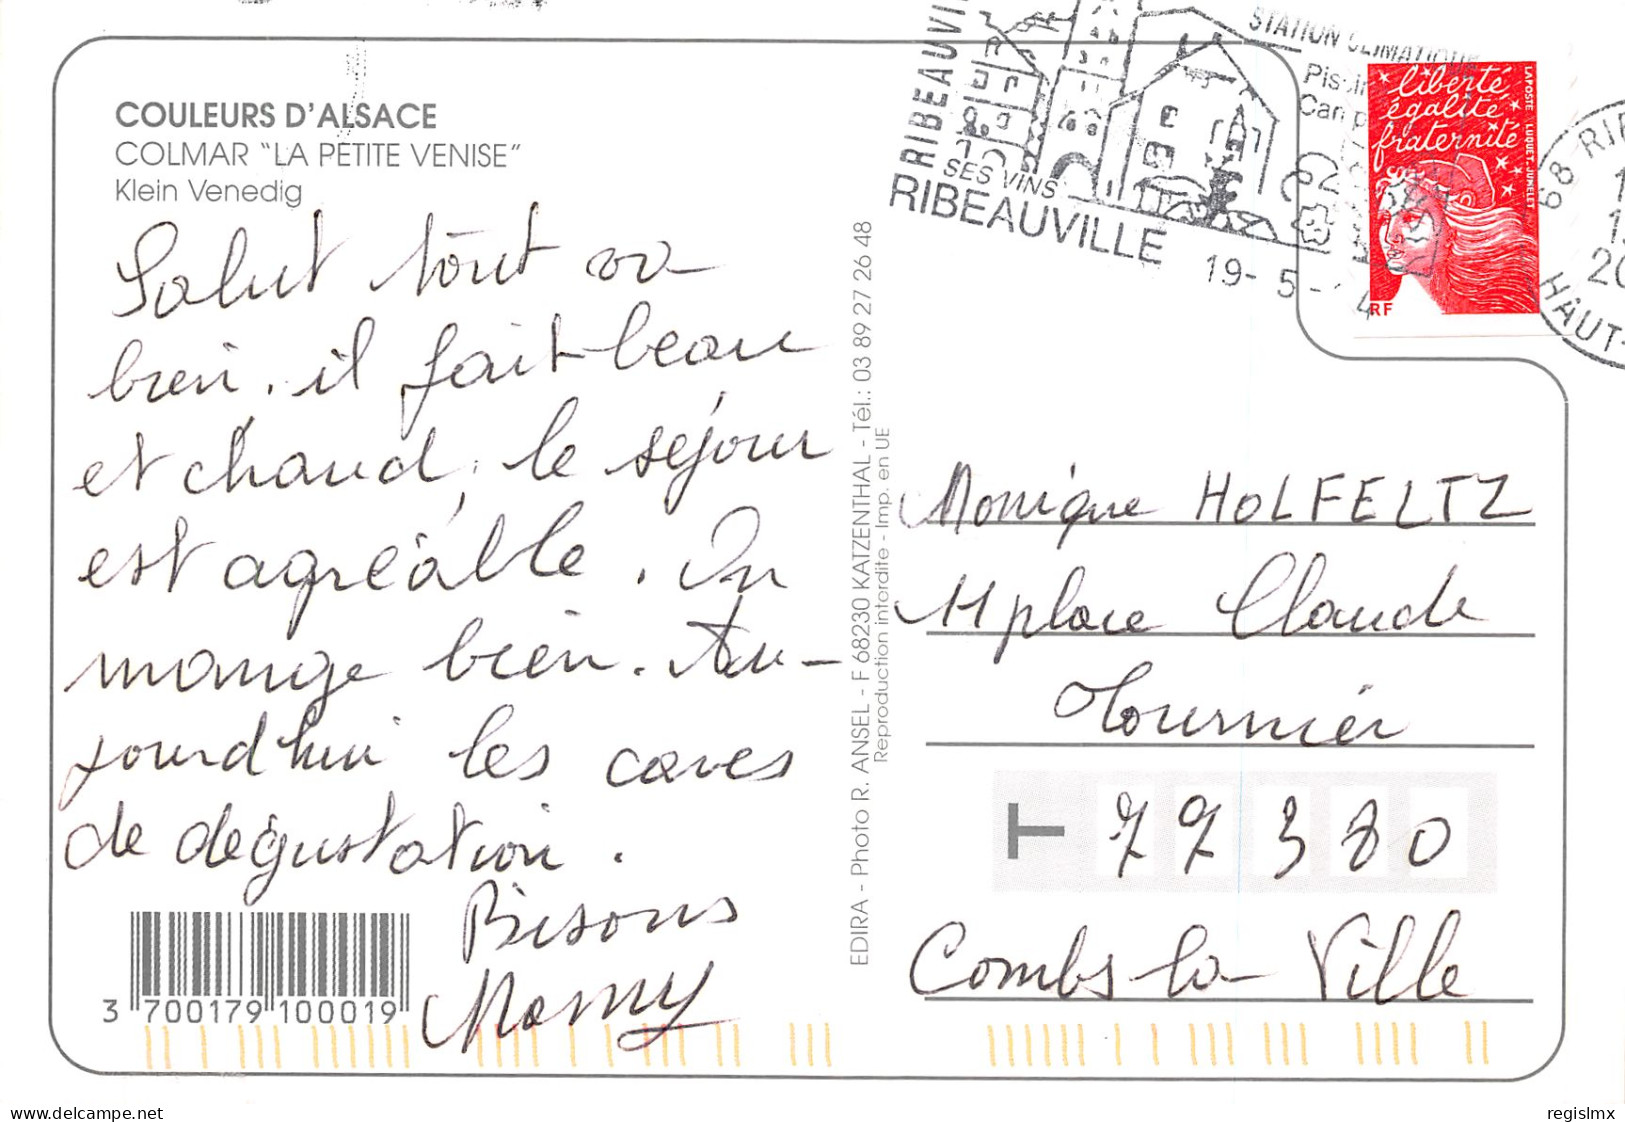 COULEURS D'ALSACE
COLMAR "LA PETITE VENISE"
Klein Venedig
Salut tout va
bien. il fait beau
et chaud, le séjour
est agréable. On
mange bien. Au-
jourd'hui les caves
de dégustation.
Bisous
Mamy
3 700179 100019
EDIRA - Photo R. ANSEL - F 68230 KATZENTHAL - Tél.: 03 89 27 26 48
Reproduction interdite - Imp. en UE
RIBEAUVILLE
STATION CLIMATIQUE
SES VINS
RIBEAUVILLE
19- 5 - 4
liberté
égalité
fraternité
LA POSTE LUQUET. JUMELET
RF
68 RI
HAUT-
Monique HOLFELTZ
11 place Claude
Tournier
T 77380
Combs la Ville
delcampe.net
regislmx